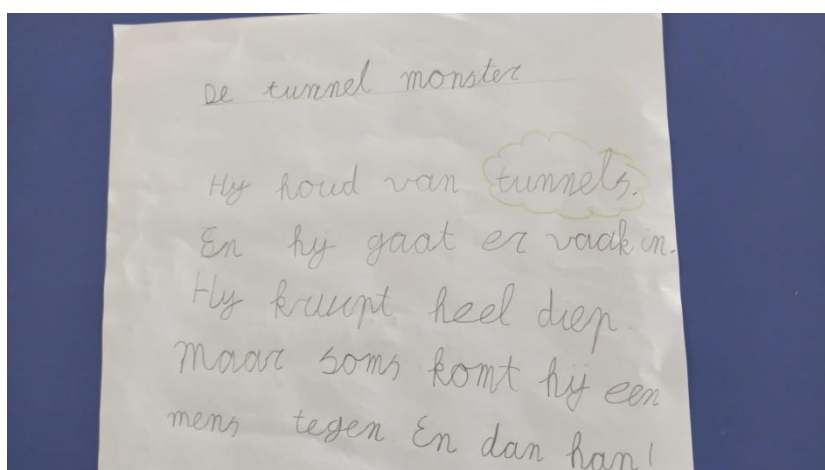 De tunnel monster
Hij houd van tunnels.
En hij gaat er vaak in.
Hij kruipt heel diep.
Maar soms komt hij een
mens tegen. En dan hap!